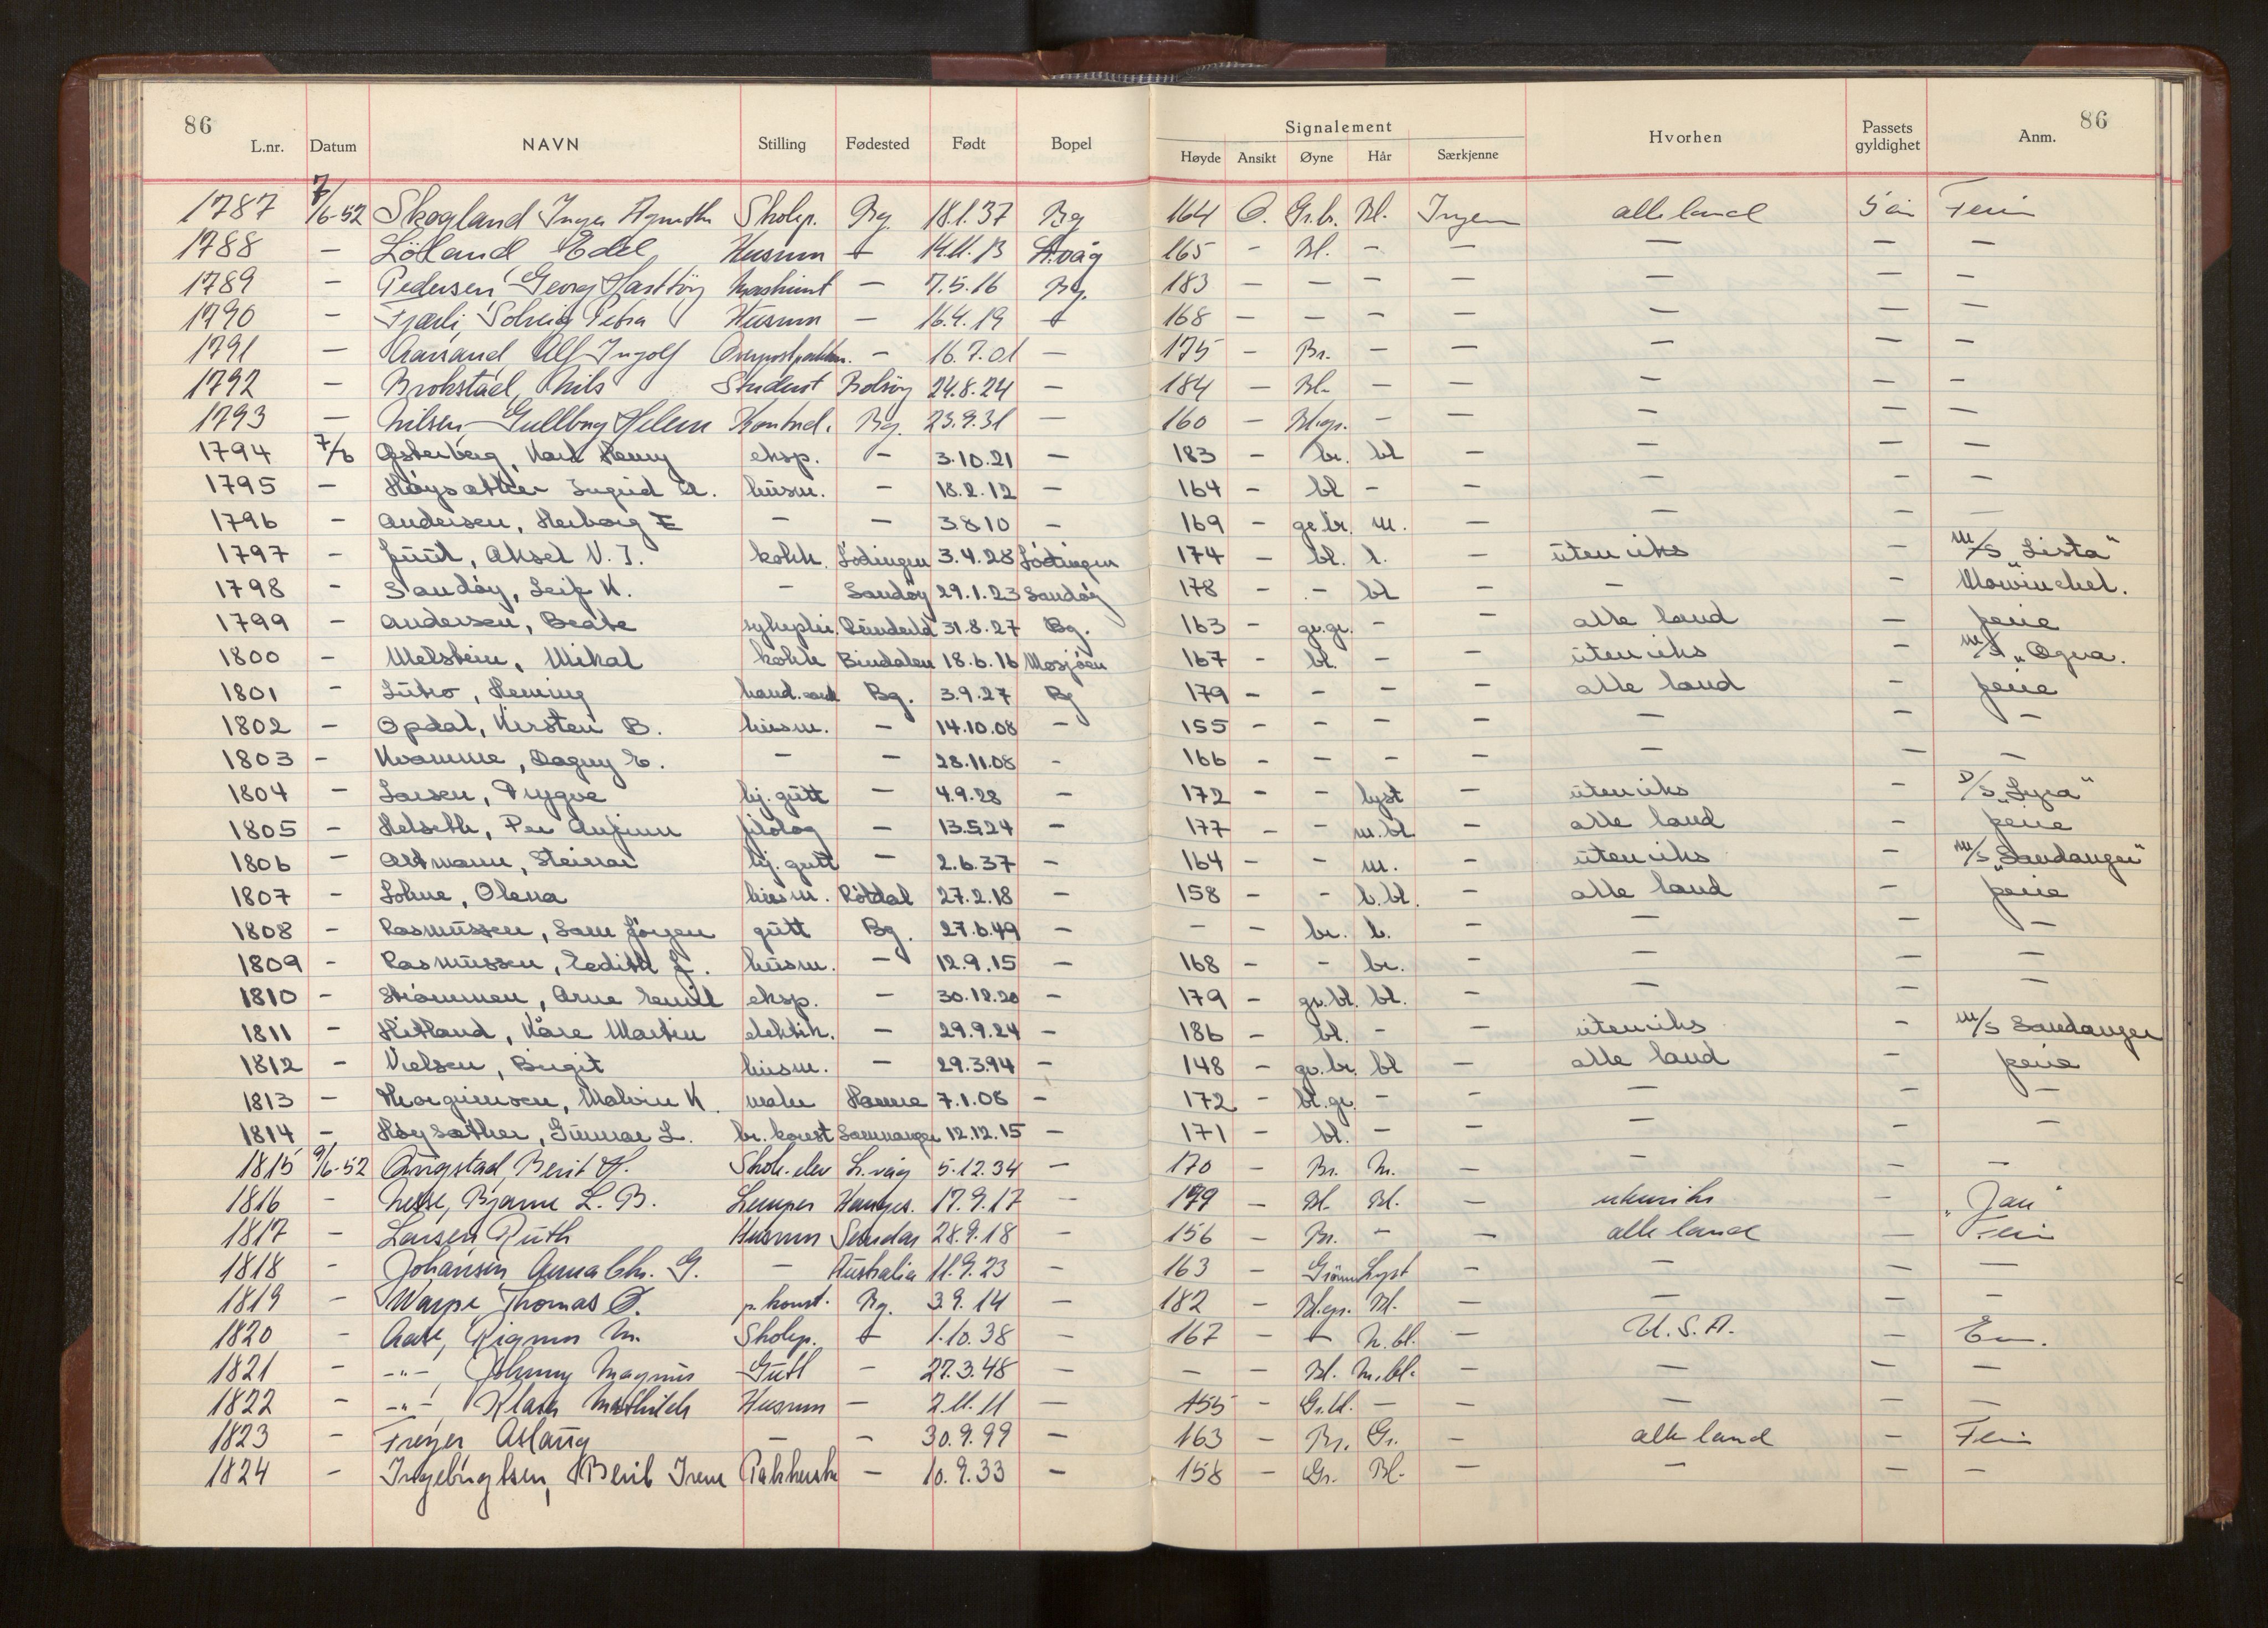 86
86
L.nr. Datum NAVN Stilling Fødested Født Bopel Signalement Hvorhen Passets gyldighet Anm.
Høyde Ansikt Øyne Hår Særkjenne
1787 7/6-52 Skogland Inger Agnethe Skolep. Bg. 18.1.37 Bg 164 O. Gr.br. Bl. Ingen alle land 5 år Ferie
1788 — Löland Edel Husmor — 14.11.13 165 - Bl. - — — — —
1789 — Pedersen, Georg Maskinist — 7.5.16 Bg. 183 — — — — — — —
1790 — Solveig Petra Husmor — 16.4.19 — 168 — — — — — — —
1791 — Alf Ingolf — 16.7.01 — 175 — Br. — — — — —
1792 — Brokstad, Nils Student Bolsöy 24.8.24 — 184 — Bl. — — — — —
1793 — Nilsen, Gullborg Helene Kontord. Bg. 23.9.31 — 160 — Bl.gr. — — — — —
1794 7/6 Østerberg, Karl Henry eksp. — 3.10.21 — 183 — br. bl — — — —
1795 — Höysæther Ingrid A. husm. — 18.2.12 — 164 — bl — — — — —
1796 — Andersen, Herborg E — — 3.8.10 — 169 — gr.br. m. — — — —
1797 — Juul, Aksel V. J. kokk Lödingen 3.4.28 Lödingen 174 — bl. l. — utenriks — m/s "Lista"
1798 — Sandöy, Leif K. — Sandöy 29.1.23 Sandöy 178 — — bl — — — Mowinckel.
1799 — Andersen, Beate sykeplei. 31.8.27 Bg. 163 — gr.gr. — — alle land — ferie
1800 — Melstein, Mikal kokk Bindalen 18.6.16 Mosjöen 167 — bl. — — utenriks — "Ogna.
1801 — Henning Bg. 3.9.27 Bg 179 — — — — alle land — ferie
1802 — Opdal, Kirsten B. husm. — 14.10.08 — 155 — — — — — — —
1803 — Kvamme, Dagny E. — — 28.11.08 — 166 — — — — — — —
1804 — Larsen, Trygve bj. gutt — 4.9.28 — 172 — — lyst — utenriks — D/S "Lyra"
1805 — Helseth, Per Anfinn filolog — 13.5.24 — 177 — — m.bl. — alle land — ferie
1806 — Altmann, Steinar bj. gutt — 2.6.37 — 164 — — m. — utenriks — m/s "Sandanger"
1807 — Lohne, Olena husm. 27.2.18 — 158 — — b.bl. — alle land — ferie
1808 — Rasmussen, Sam Jörgen gutt Bg. 27.6.49 — — — br. b. — — — —
1809 — Rasmussen, Edith J. husm. — 12.9.15 — 168 — — br. — — — —
1810 — Strömmen, Arne Emil eksp. — 30.12.20 — 179 — gr.bl. bl. — — — —
1811 — Hitland, Kåre Martin elektrik. — 29.9.24 — 186 — bl. — — utenriks — m/s Sandanger
1812 — Nielsen, Birgit husm. — 29.3.94 — 148 — gr.br. bl — alle land — ferie
1813 — Malvin K. maler 7.1.06 — 172 — bl.gr. — — — — —
1814 — Höysæther, Gunnar L. Samnanger 12.12.15 — 171 — bl. — — — — —
1815 9/6-52 Angstad, Berit H. Skole.elev 5.12.34 — 170 — Br. M. — — — —
1816 — Nesse, Bjarne L. B. Lemper Hauges. 17.9.17 — 179 — Bl. Bl. — utenriks — "Jan"
1817 — Larsen Ruth Husmor 28.9.18 — 156 — Br. — — alle land — Ferie
1818 — Johansen, Anna Chr. G. — Australia 11.9.23 — 163 — Grönn Lyst — — — —
1819 — Warpe Thomas Ø. Bg. 3.9.14 — 182 — Bl.gr. Bl. — — — —
1820 — Rigmor M. Skolep. — 1.10.38 — 167 — — M.bl. — U.S.A. —
1821 — -"- , Johnny Magnus Gutt — 27.3.48 — — — Bl. M.bl. — — — —
1822 — -"- , Klara Mathilde Husmor — 2.11.11 — 155 — Gr.bl. — — — — —
1823 — Aslaug — — 30.9.99 — 163 — Br. Gr. — alle land — Ferie
1824 — Ingebrigtsen, Berit Irene — 10.9.33 — 158 — Gr. Bl. — — — —